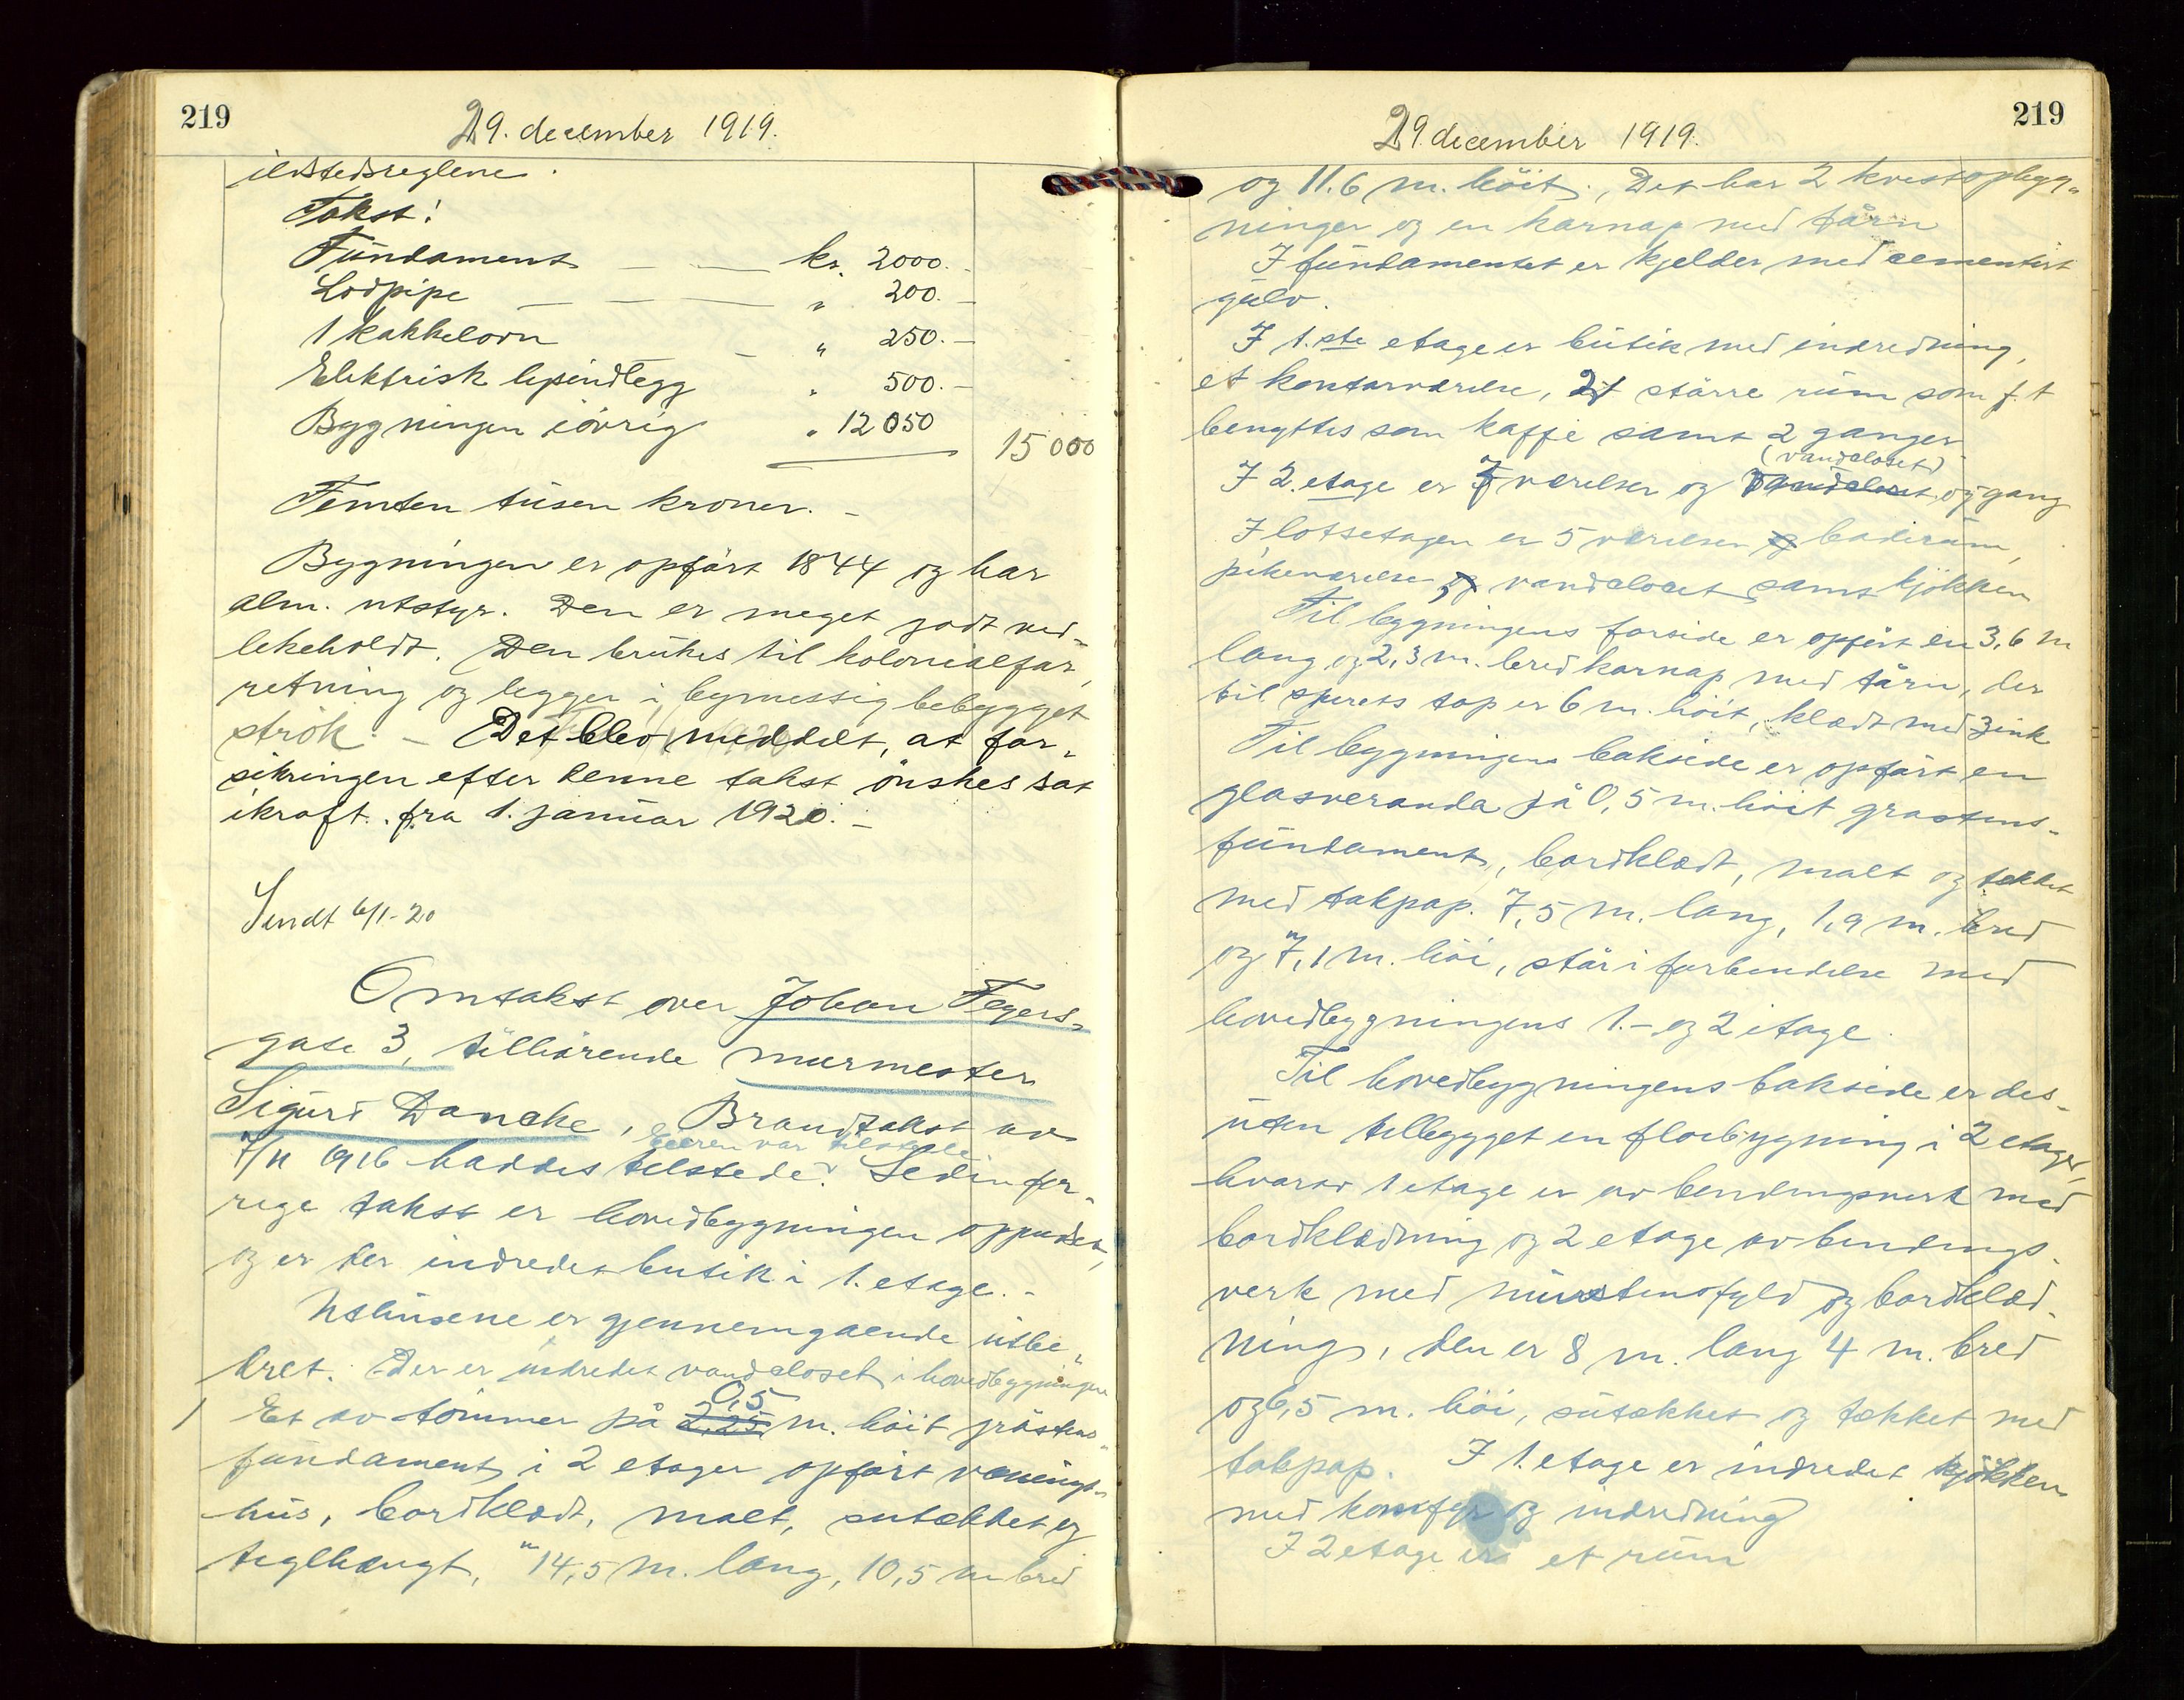 219
29. december 1919.
ildstedsreglene.
Takst:
Fundament — — kr. 2000.-
Lodpipe — — — " 200.-
1 kakkelovn — " 250.-
Elektrisk lysindlegg " 500.-
Bygningen iøvrig " 12050
15000
Femten tusen kroner. -
Bygningen er opført 1844 og har
alm. utstyr. Den er meget godt ved-
likeholdt. Den brukes til kolonialfor-
retning og ligger i bymessig bebygget
strøk. - Det blev meddelt, at for-
sikringen efter denne takst ønskes sat
ikraft fra 1. januar 1920. -
Sendt 6/1-20
Omtakst over Johan Feyers-
gate 3, tilhørende murmester
Sigurd Dancke, Brandtakst av
eieren var tilstede
7/11 1916 haddes tilstede. Siden for-
rige takst er hovedbygningen oppudset,
og er der indredet butik i 1. etage. -
Uthusene er gjennemgaende utbe-
dret. Der er indredet vandcloset i hovedbygningen
0,5
1 Et av tømmer på 2,25 m. høit gråstens-
fundament i 2 etager opført vånings-
hus, bordklædt, malt, sutækket og
teglhængt, 14,5 m. lang, 10,5 m bred
219
29 december 1919.
og 11.6 m. höit. Det har 2 kvistopbyg-
ninger og en karnap med tårn
I fundamentet er kjelder med cementert
gulv.
I 1.ste etage er butik med indredning,
et kontorværelse, 2 større rum som f. t
benyttes som kaffe samt 2 ganger
(vandcloset)
I 2. etage er 7 værelser og vandcloset og gang
I loftsetagen er 5 værelser og baderum,
pikeværelse og vandcloset samt kjøkken
Til bygningens forside er opført en 3,6 m
lang og 2,3 m. bred karnap med tårn, der
til spirets top er 6 m. höit, klædt med zink
Til bygningens bakside er opført en
glasveranda på 0,5 m. höit gråstens-
fundament, bordklædt, malt og tækket
med takpap. 7,5 m. lang, 1,9 m. bred
og 7,1 m. höi, står i forbindelse med
hovedbygningens 1.- og 2 etage.
Til hovedbygningens bakside er des-
uten tilbygget en fløibygning i 2 etager,
hvorav 1 etage er av bendingsverk med
bordklædning og 2 etage av bendings-
verk med murstensfyld og bordklæd-
ning, den er 8 m. lang 4 m. bred
og 6,5 m. höi, sutækket og tækket med
takpap. I 1. etage er indredet kjøkken
med komfyr og indredning
I 2 etage er et rum